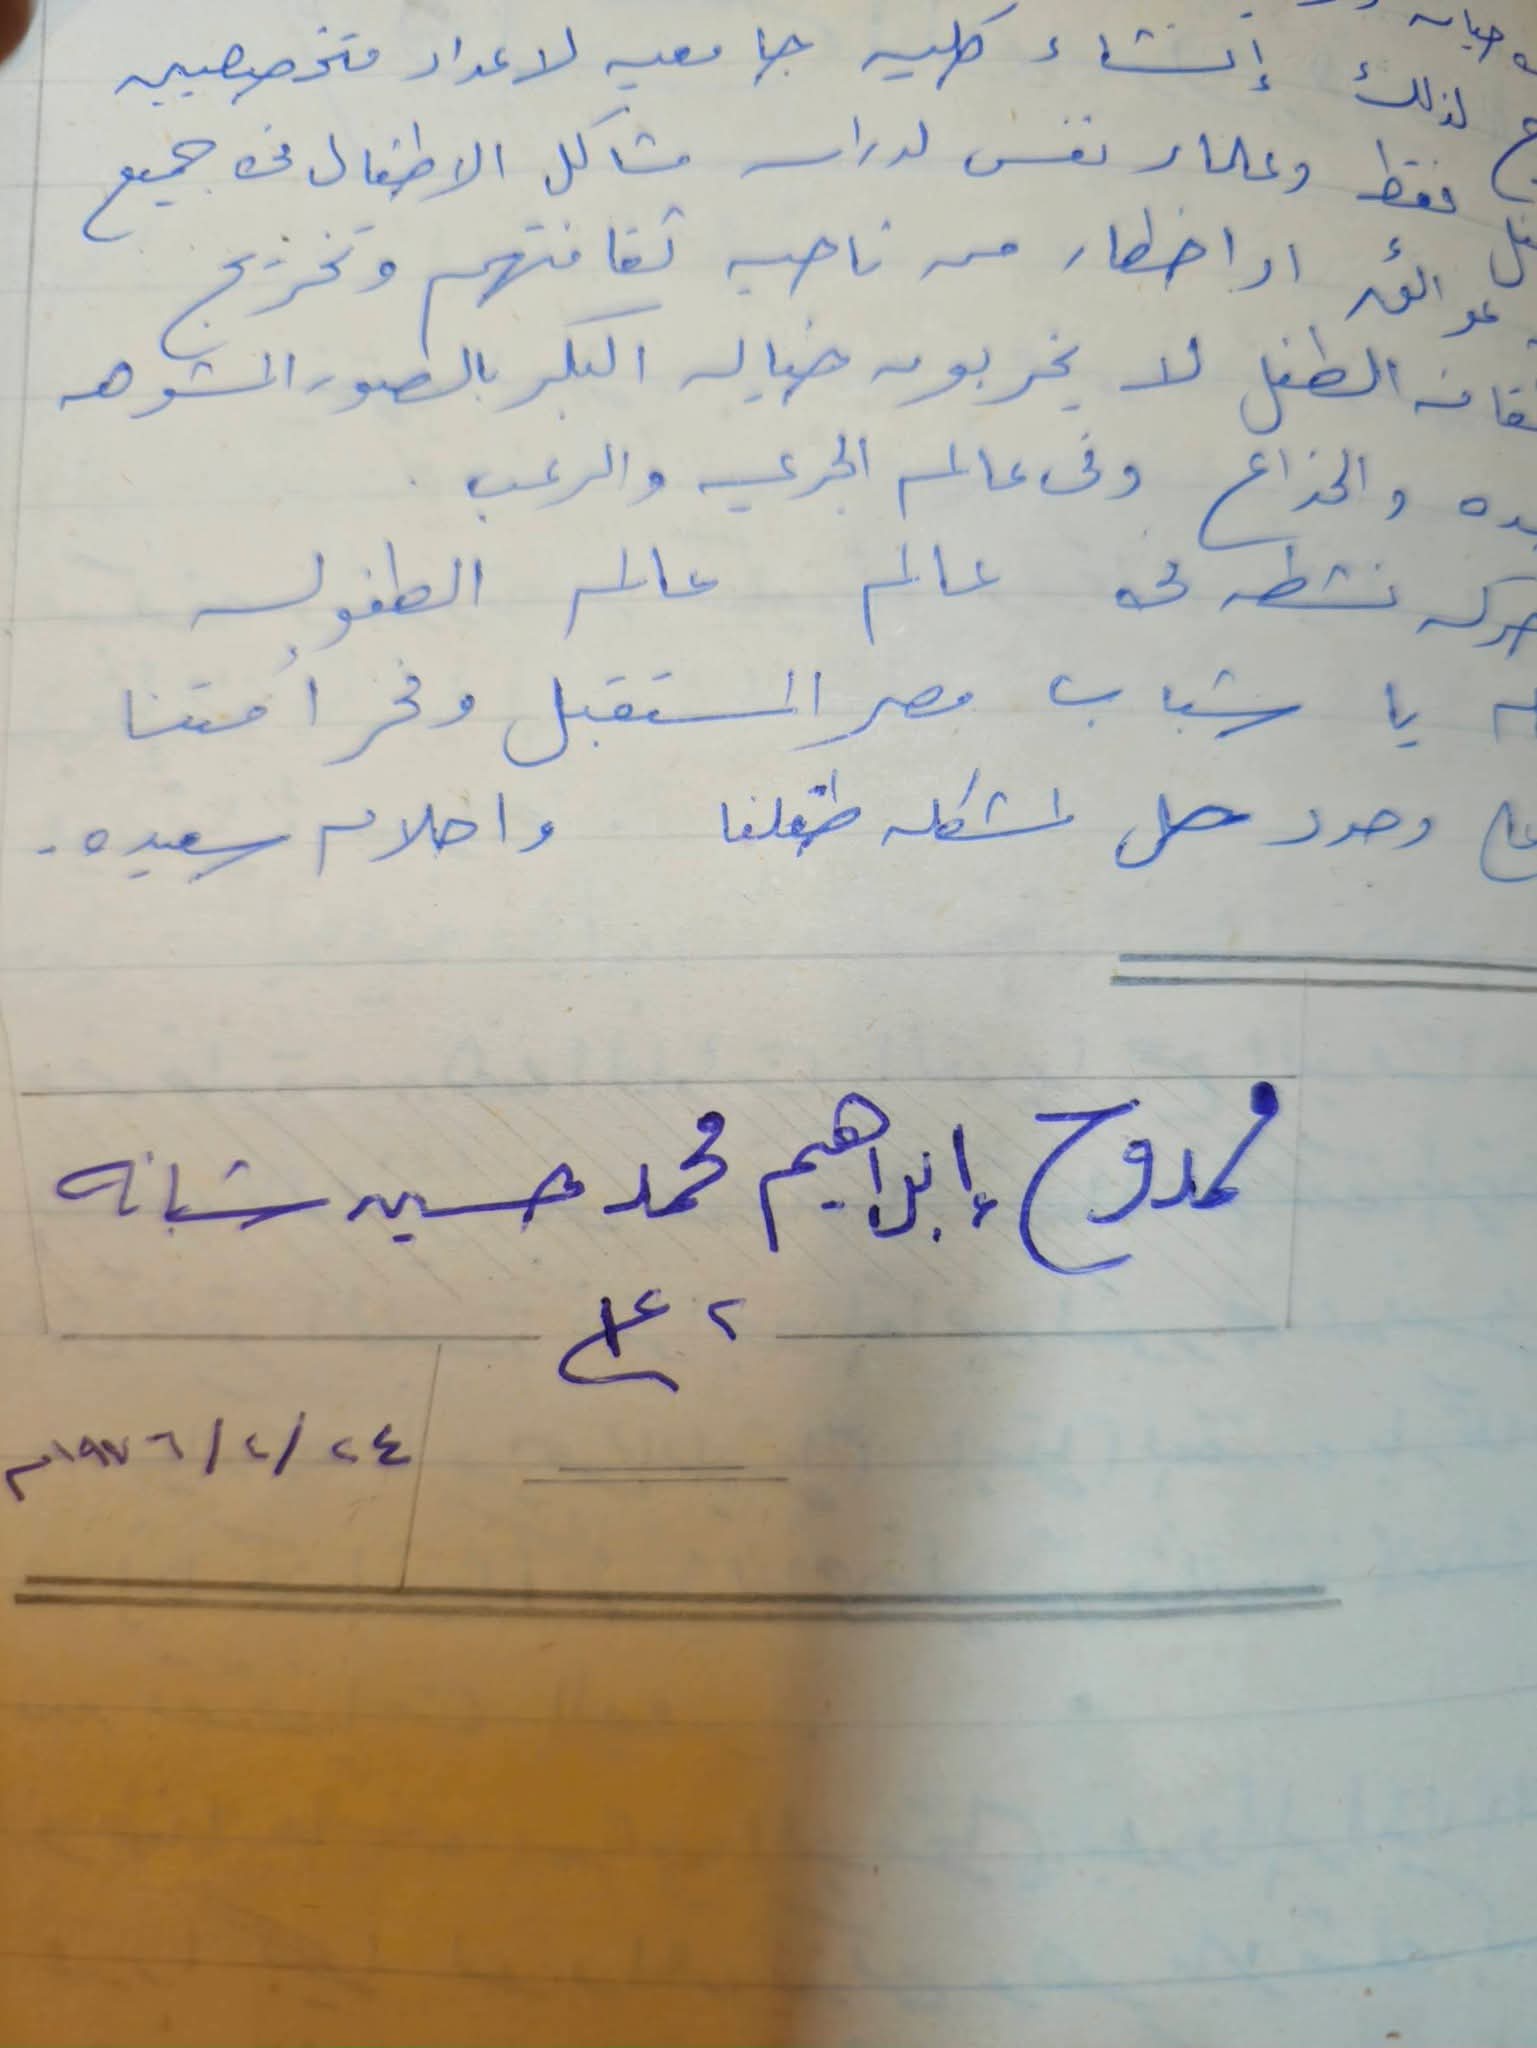 لذلك إنشاء كليه جامعيه لاعداد متخصصيين
فقط وعلماء نفس لدراسه مشاكل الاطفال فى جميع
عوائق او اخطار من ناحيه ثقافتهم وتخريج
الطفل لا يخربون خياله البكر بالصور المشوهه
والخداع وفى عالم الجريمه والرعب .
نشطه فى عالم عالم الطفوله
يا شباب مصر المستقبل وفخر أمتنا
وجود حل لمشكله طفلنا واحلام سعيده .
ممدوح إبراهيم محمد حسين شبانه
٢٤/٢/١٩٧٦م